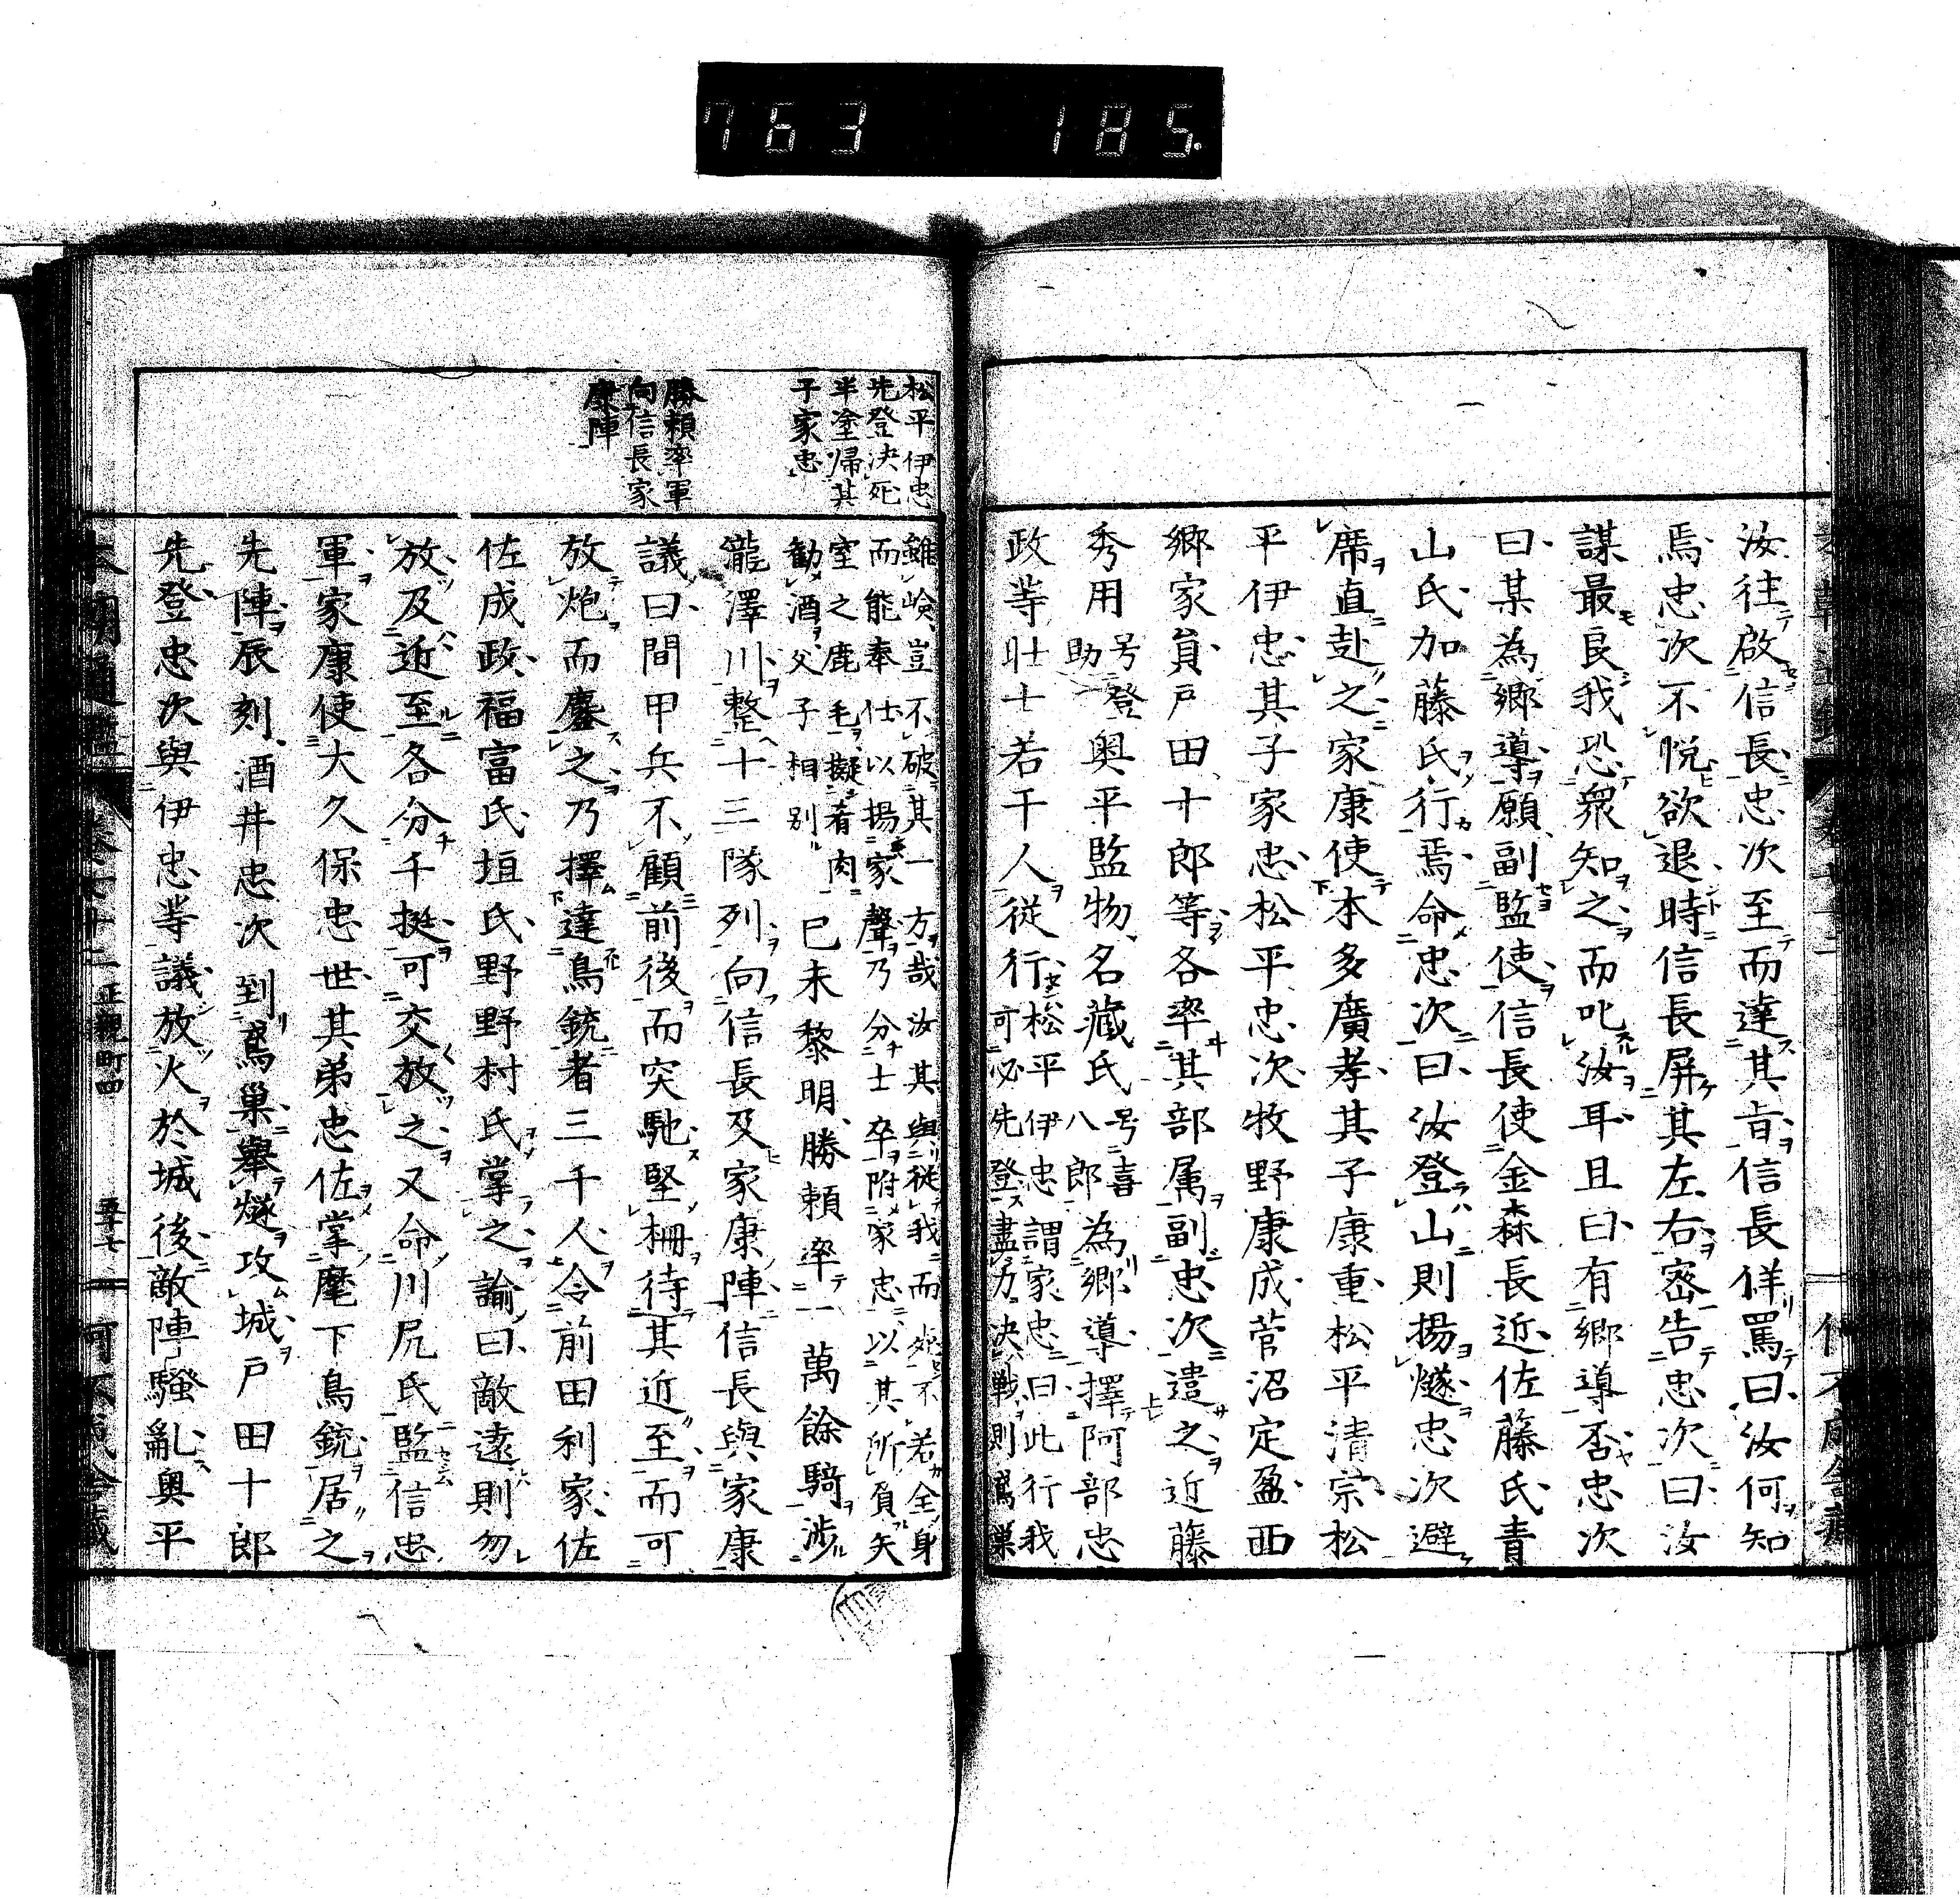 763 185.
汝往啟信長忠次至而達其旨信長佯罵曰汝何知
焉忠次不悅欲退時信長屏其左右密告忠次曰汝
謀最良我恐衆知之而叱汝耳且曰有鄉導否忠次
曰某為鄉導願副監使信長使金森長近佐藤氏青
山氏加藤氏行焉命忠次曰汝登山則揚燧忠次避
席直赴之家康使本多廣孝其子康重松平清宗松
平伊忠其子家忠松平忠次牧野康成菅沼定盈西
鄉家員戸田十郎等各率其部属副忠次遣之近藤
秀用号登助奥平監物名藏氏号喜八郎為鄉導擇阿部忠
政等壯士若干人從行松平伊忠謂家忠曰此行我
可必先登盡力決戰則鳶巢
松平伊忠
先登決死
半塗歸其
子家忠
雖嶮豈不破其一方哉汝其與從我而死不若全身
而能奉仕以揚家聲乃分士卒附家忠以其所負矢
室之鹿毛擬肴肉
勸酒父子相別
已未黎明勝賴率一萬餘騎渉
勝賴率軍
向信長家
康陣
瀧澤川整十三隊列向信長及家康陣信長與家康
議曰間甲兵不顧前後而突馳堅柵待其近至而可
放炮而鏖之乃擇達鳥銃者三千人令前田利家佐
佐成政福富氏垣氏野野村氏掌之諭曰敵遠則勿
放及近至各分千挺可交放之又命川尻氏監信忠
軍家康使大久保忠世其弟忠佐掌麾下鳥銃居之
先陣辰刻酒井忠次到鳶巢舉燧攻城戸田十郎
先登忠次與伊忠等議放火於城後敵陣騷亂奥平
本朝通鑑 正親町四 五十七